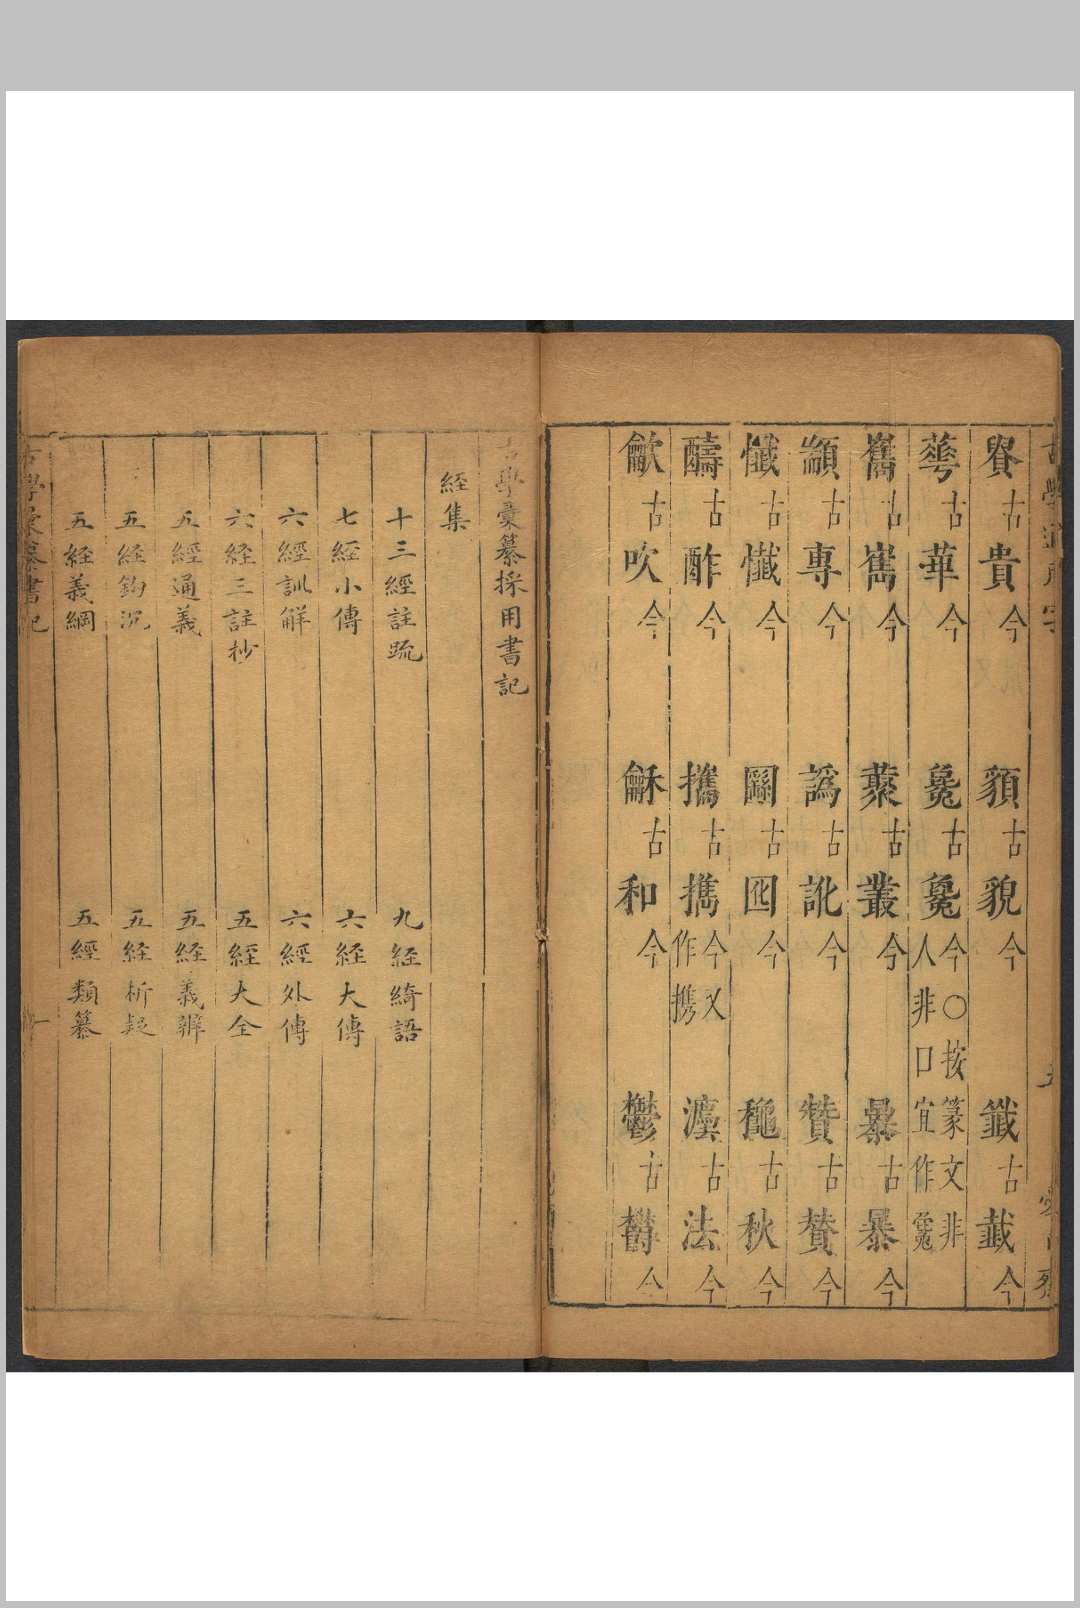 古貴今
貌今
古今
古華今
古毚今○按篆文非
人非口宜作毚
古雋今
古叢今
古暴今
顓古專今
譌古訛今
古贊今
懺今
古囮今
古秋今
醻古酢今
攜古擕今又
作携
灋古法今
龡古吹今
龢古和今
鬱古欝今
古學彙纂採用書記
経集
十三經註疏
九経綺語
七経小傳
六経大傳
六經訓解
六經外傳
六経三註抄
五経大全
五經通義
五経義辨
五経鈎沉
五経析疑
五経義綱
五經類纂
學彙纂書記
一